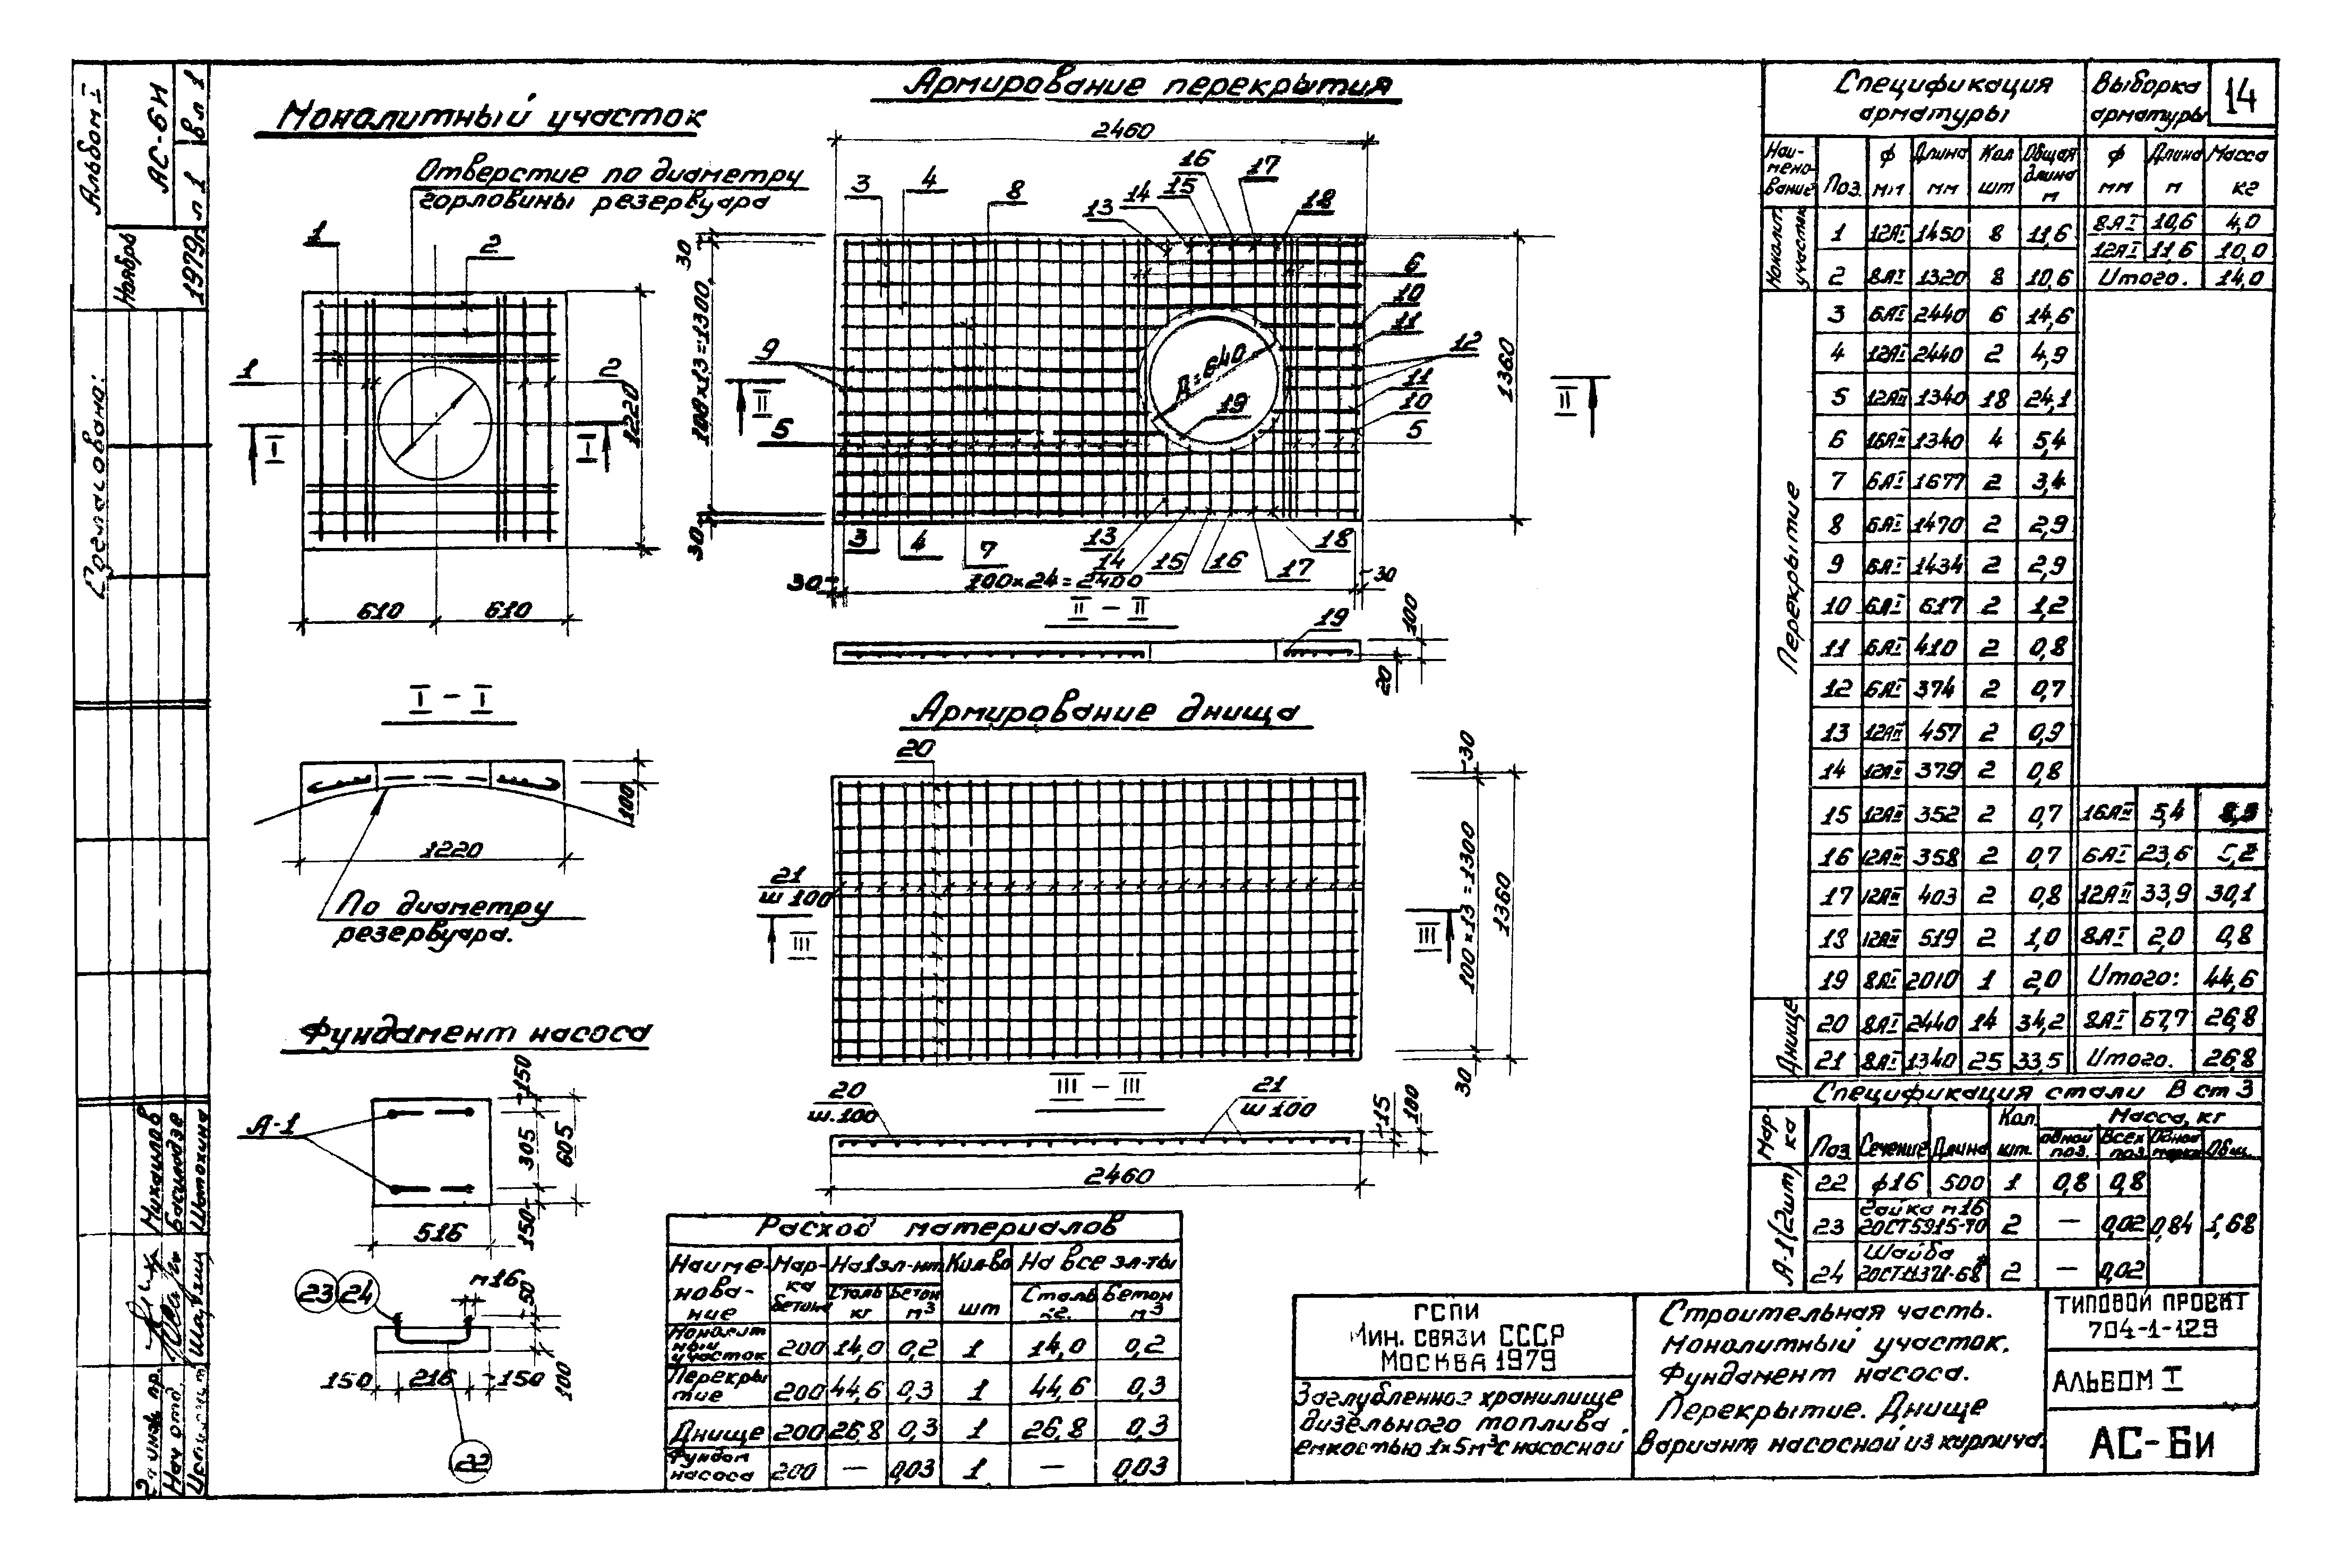 Альбом I
АС-6И
л 1
в л 1
Ноябрь
1979г
Согласовано:
Михайлов
Василадзе
Шатохина
Нач отд.
Монолитный участок
Отверстие по диаметру
горловины резервуара
1
2
1
2
I
I
1220
610
610
I – I
100
1220
По диаметру
резервуара.
Фундамент насоса
А-1
150
305
605
150
516
23
24
м16
50
150
216
150
100
22
Армирование перекрытия
2460
3
4
8
13
14
15
16
17
18
30
100х13=1300
30
9
5
II
Д=640
19
6
10
11
12
11
10
5
1360
II
3
4
7
13
14
15
16
17
18
30
100х24=2400
30
II – II
19
100
20
Армирование днища
20
21
ш 100
III
III
30
100х13=1300
1360
30
III – III
20
ш.100
21
ш 100
15
100
2460
Расход материалов
Наименование
Марка бетона
На 1 эл-нт
Кол-во шт
На все эл-ты
Сталь кг
Бетон м³
Сталь кг.
Бетон м³
Монолитный участок 200 14,0 0,2 1 14,0 0,2
Перекрытие 200 44,6 0,3 1 44,6 0,3
Днище 200 26,8 0,3 1 26,8 0,3
Фундам насоса 200 — 0,03 1 — 0,03
Спецификация арматуры
Выборка арматуры
14
Наименование
Поз.
ф мм
Длина мм
Кол шт
Общая длина м
ф мм
Длина м
Масса кг
Монолит участок
1 12АI 1450 8 11,6 8АI 10,6 4,0
12АI 11,6 10,0
2 8АI 1320 8 10,6 Итого. 14,0
Перекрытие
3 6АI 2440 6 14,6
4 12АI 2440 2 4,9
5 12АII 1340 18 24,1
6 16АII 1340 4 5,4
7 6АI 1677 2 3,4
8 6АI 1470 2 2,9
9 6АI 1434 2 2,9
10 6АI 617 2 1,2
11 6АI 410 2 0,8
12 6АI 374 2 0,7
13 12АII 457 2 0,9
14 12АII 379 2 0,8
15 12АII 352 2 0,7 16АII 5,4
16 12АII 358 2 0,7 6АI 23,6
17 12АII 403 2 0,8 12АII 33,9 30,1
18 12АII 519 2 1,0 8АI 2,0 0,8
19 8АI 2010 1 2,0 Итого: 44,6
Днище
20 8АI 2440 14 34,2 8АI 67,7 26,8
21 8АI 1340 25 33,5 Итого. 26,8
Спецификация стали В ст 3
Марка
Поз
Сечение
Длина
Кол. шт.
Масса, кг
одной поз.
Всех поз.
Одной марки
Общ.
А-1 (2шт)
22 ф16 500 1 0,8 0,8
23 Гайка м16 ГОСТ 5915-70 2 — 0,02 0,84 1,68
24 Шайба ГОСТ 11371-68* 2 — 0,02
ГСПИ
Мин. связи СССР
Москва 1979
Заглубленное хранилище
дизельного топлива,
емкостью 1х5м³ с насосной
Строительная часть.
Монолитный участок.
Фундамент насоса.
Перекрытие. Днище
Вариант насосной из кирпича.
ТИПОВОЙ ПРОЕКТ
704-1-129
АЛЬБОМ I
АС-6и